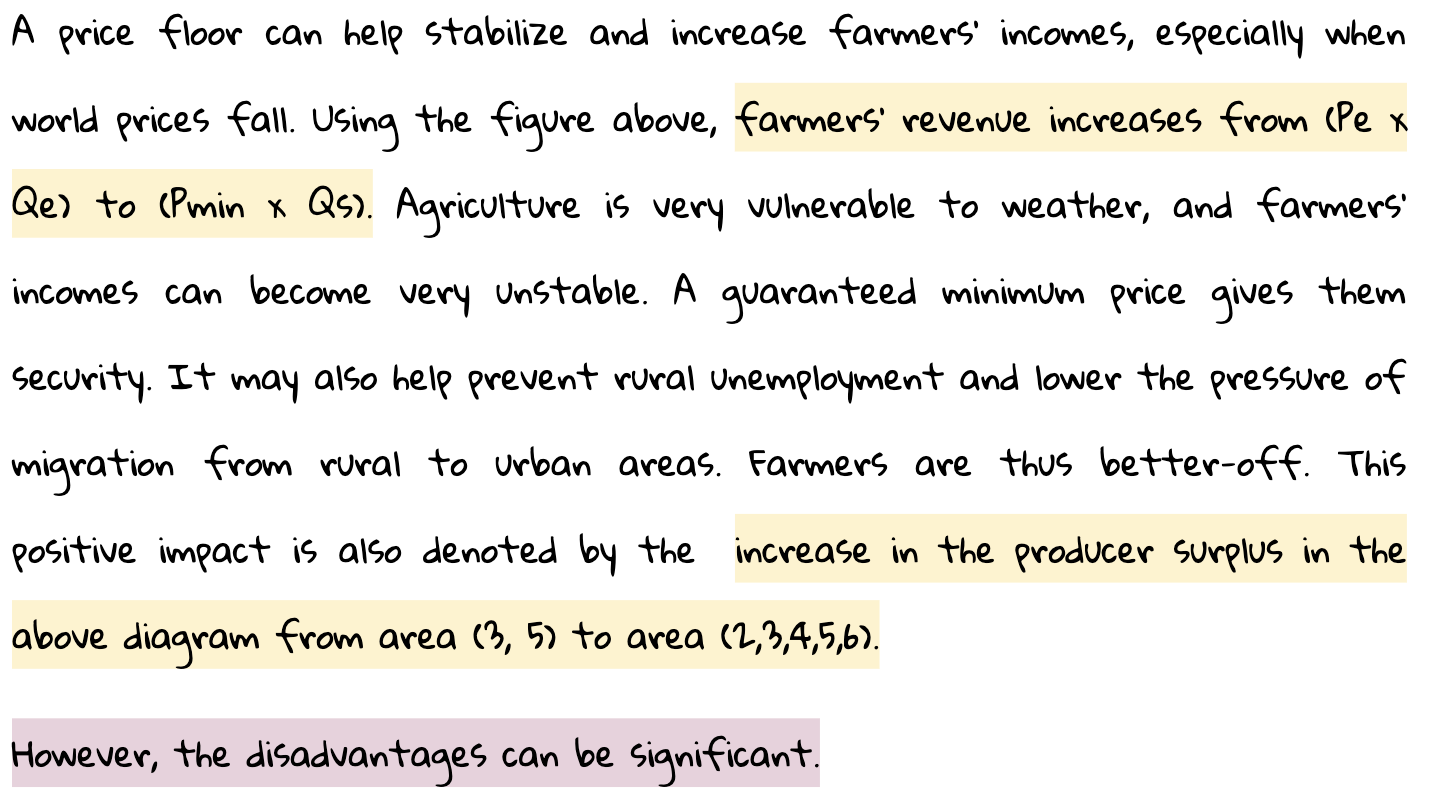 A price floor can help stabilize and increase farmers' incomes, especially when
world prices fall. Using the figure above, farmers' revenue increases from (Pe x
Qe) to (Pmin x Qs). Agriculture is very vulnerable to weather, and farmers'
incomes can become very unstable. A guaranteed minimum price gives them
security. It may also help prevent rural unemployment and lower the pressure of
migration from rural to urban areas. Farmers are thus better-off. This
positive impact is also denoted by the increase in the producer surplus in the
above diagram from area (3, 5) to area (2,3,4,5,6).
However, the disadvantages can be significant.